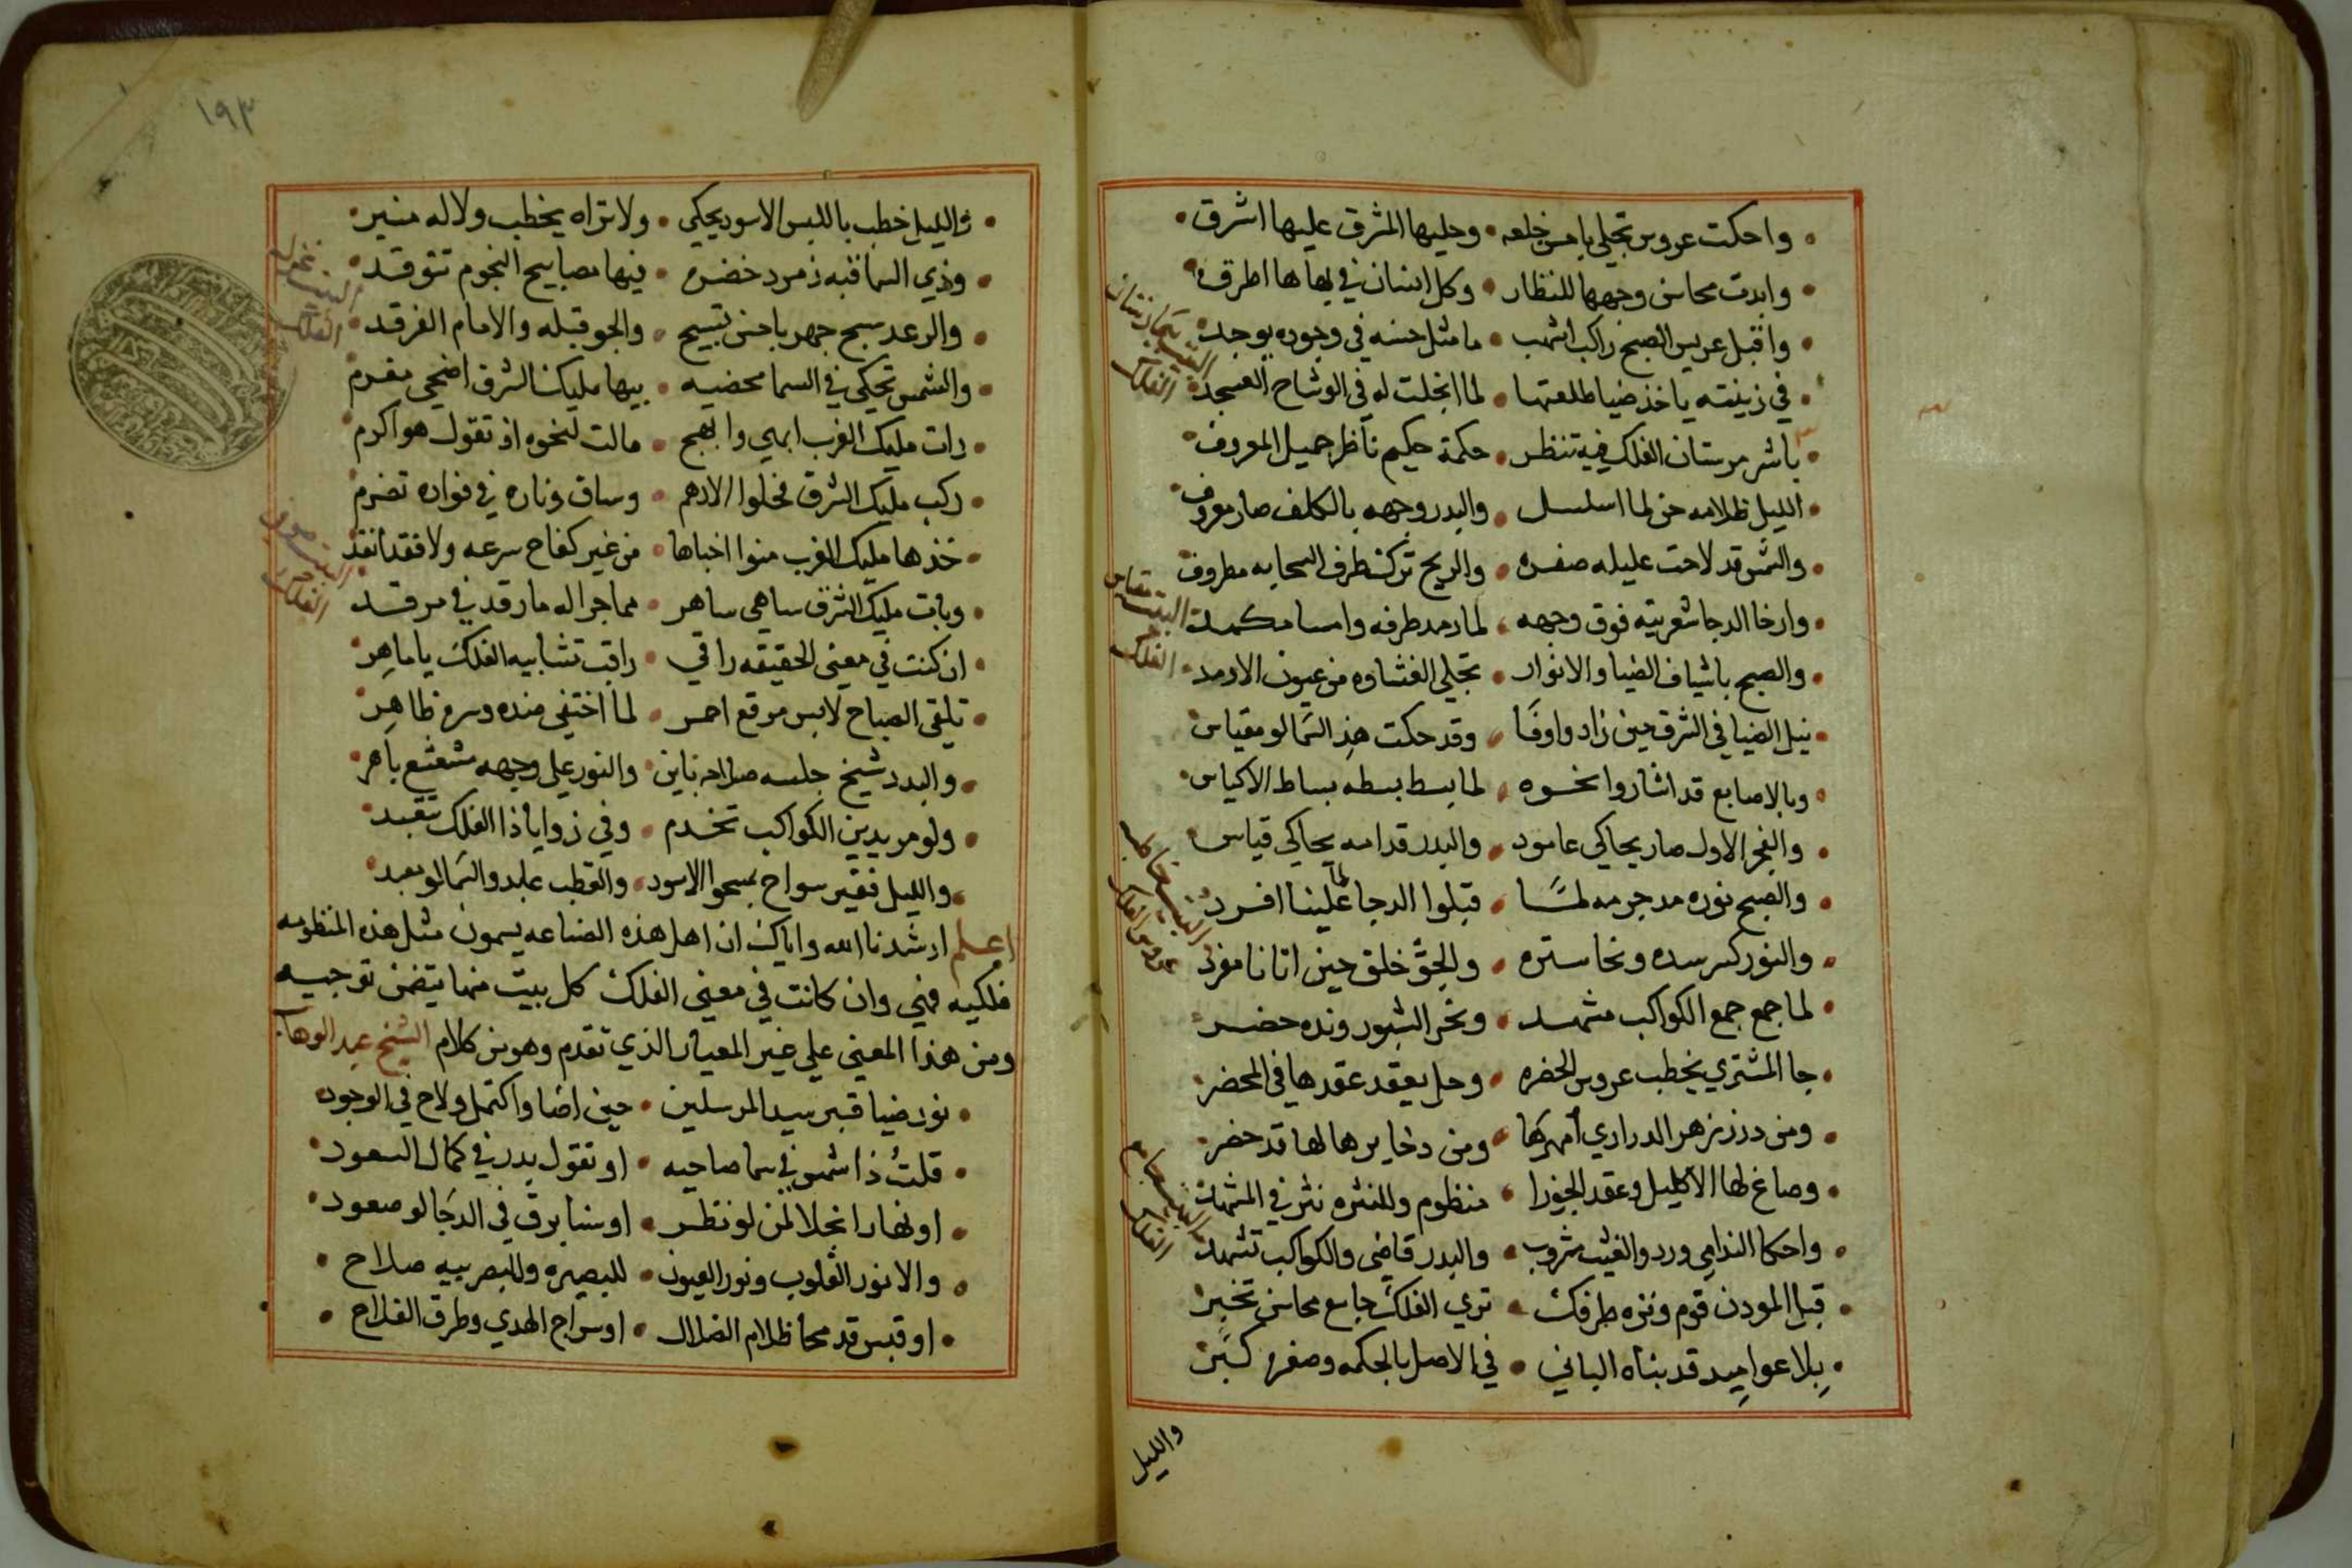 واحكت عروس تجلي باحسن خلعه • وحليها المشرق عليها اشرق
وابدت محاسن وجهها للنظار • وكل انسان في بهاها اطرق
واقبل عريس الصبح راكب اشهب • ما مثل حسنه في وجوده يوجد
في زينته ياخذ ضيا طلعتها • لما انجلت له في الوشاح العسجد
باشر مرستان الفلك فيه تنظر • حكمة حكيم ناظر جميل المعروف
الليل ظلامه جن لما اسلسل • والبدر وجهه بالكلف صار معروف
والشمس قد لاحت عليله صفره • والريح تركت طرف السحابه مطروف
وارخا الدجا شعريته فوق وجهه • لما رمد طرفه وامسا مكمد
والصبح باشياف الضيا والانوار • تجلي الغشاوه من عيون الارمد
نيل الضيا في الشرق حين زاد واوفا • وقد حكت هذي السما لو مقياس
وبالاصابع قد اشاروا نحوه • لما بسط بسطه بساط الاكياس
والفجر الاول صار يحاكي عامود • والبدر قدامه يحاكي قياس
والصبح نوره مد جرمه لمسا • قبلوا الدجا لما علينا افرد
والنور كسر سده ونحا ستره • والجو خلق حين اتانا مفرد
لما جمع جمع الكواكب مشهد • ونحر الشبور ونده حضر
جا المشتري يخطب عروس الخضره • وحل يعقد عقدها في المحضر
ومن درر زهر الدراري امهرها • ومن دخايرها لها قد حضر
وصاغ لها الاكليل وعقد الجوزا • منظوم وللنثره نثر في المشهد
واحكا الندامي ورد والغيث مشروب • والبدر قاضي والكواكب تشهد
قبل المودن قوم ونزه طرفك • تري الفلك جامع محاسن تخبر
بلا عواميد قد بناه الباني • في الاصل بالحكمه وصغر كبر
والليل
١٩٣
والليل خطب باللبس الاسود يحكي • ولا تراه يخطب ولا له منبر
وذي السما قبه زمرد خضره • فيها مصابيح النجوم تتوقد
والرعد سبح جهر باحسن تسبيح • والجو قبله والامام الفرقد
والشمس تحكي في السما محضيه • بيها مليكنا الشرق اضحي مغرم
رات مليك الغرب ابهي وابهج • مالت لنحوه اذ تقول هو اكرم
ركب مليك الشرق فحلوا الادهم • وساق وناره في فواده تضرم
خذها مليك الغرب منوا اخباها • من غير كفاح سرعه ولا فقد انفد
وبات مليك الشرق ساهي ساهر • مما جرا له ما رقد في مرقد
ان كنت في معني الحقيقه راقي • راقب تشابيه الفلك يا ماهر
تلقي الصباح لابس مرقع احمر • لما اختفي منده وسره ظاهر
والبدر شيخ جلسه صلاحه باين • والنور علي وجهه مشعشع باهر
ولو مريدين الكواكب تخدم • وفي زوايا ذا الفلك تتقيد
والليل فقير سواح بمسحوا الاسود • والقطب عابد والسما لو معبد
اعلم ارشدنا الله واياك ان اهل هذه الصناعه يسمون مثل هذه المنظومه
فلكيه فهي وان كانت في معني الفلك كل بيت منها يتضمن توجيه
ومن هذا المعني علي غير المعيار الذي تقدم وهو من كلام الشيخ عبد الوهاب
نور ضيا قبر سيد المرسلين • حين اضا واكتمل ولاح في الوجود
قلت ذا شمس في سما صاحيه • او تقول بدر في كمال السعود
او نهار انجلا لمن لو نظر • او سنا برق في الدجا لو صعود
والا نور القلوب ونور العيون • للبصيره وللبصر بيه صلاح
او قبس قد محا ظلام الضلال • او سراج الهدي وطرق الفلاح